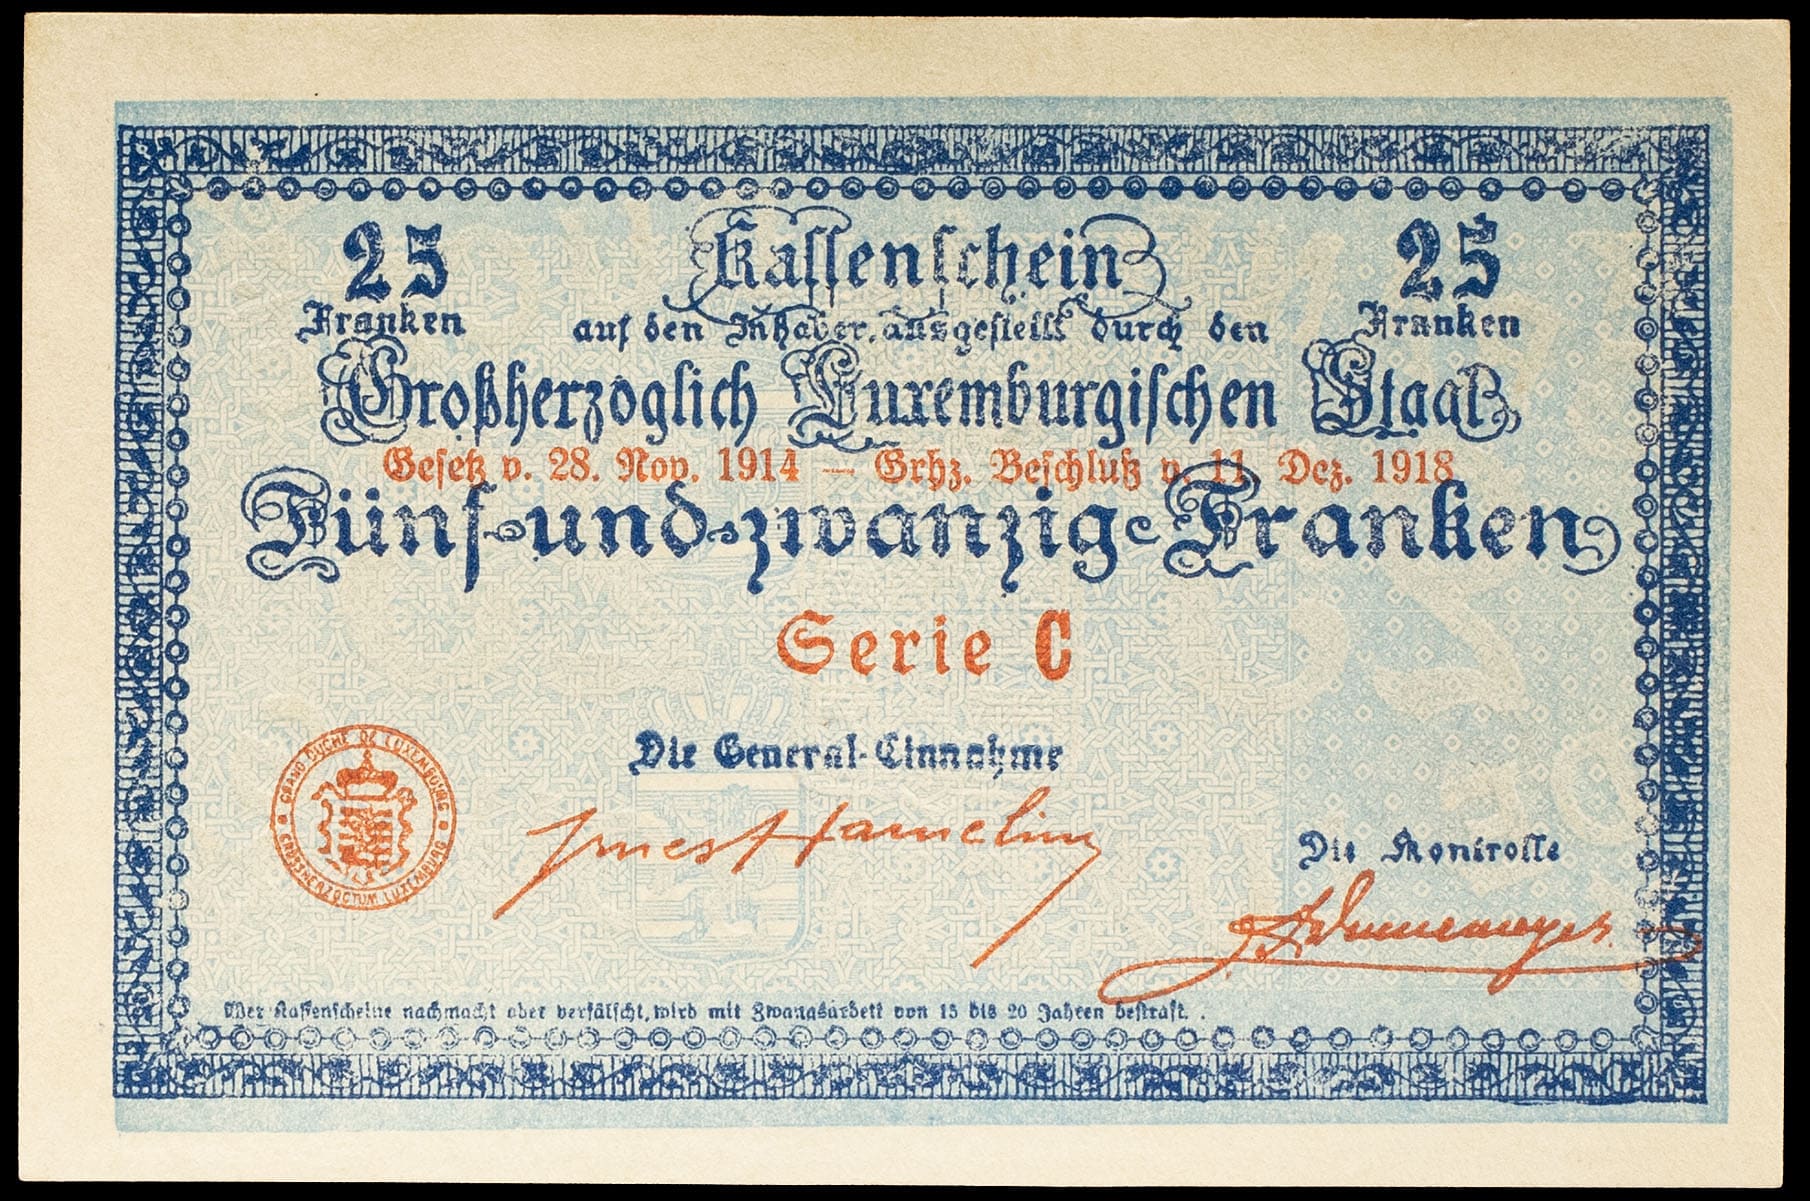 25 Kassenschein 25
Franken auf den Inhaber, ausgestellt durch den Franken
Großherzoglich Luxemburgischen Staat
Gesetz v. 28. Nov. 1914 — Grhz. Beschluß v. 11. Dez. 1918
Fünf-und-zwanzig Franken
Serie C
GRAND DUCHÉ DE LUXEMBOURG
GROSSHERZOGTUM LUXEMBURG
Die General-Einnahme
Die Kontrolle
Wer Kassenscheine nachmacht oder verfälscht, wird mit Zwangsarbeit von 15 bis 20 Jahren bestraft.